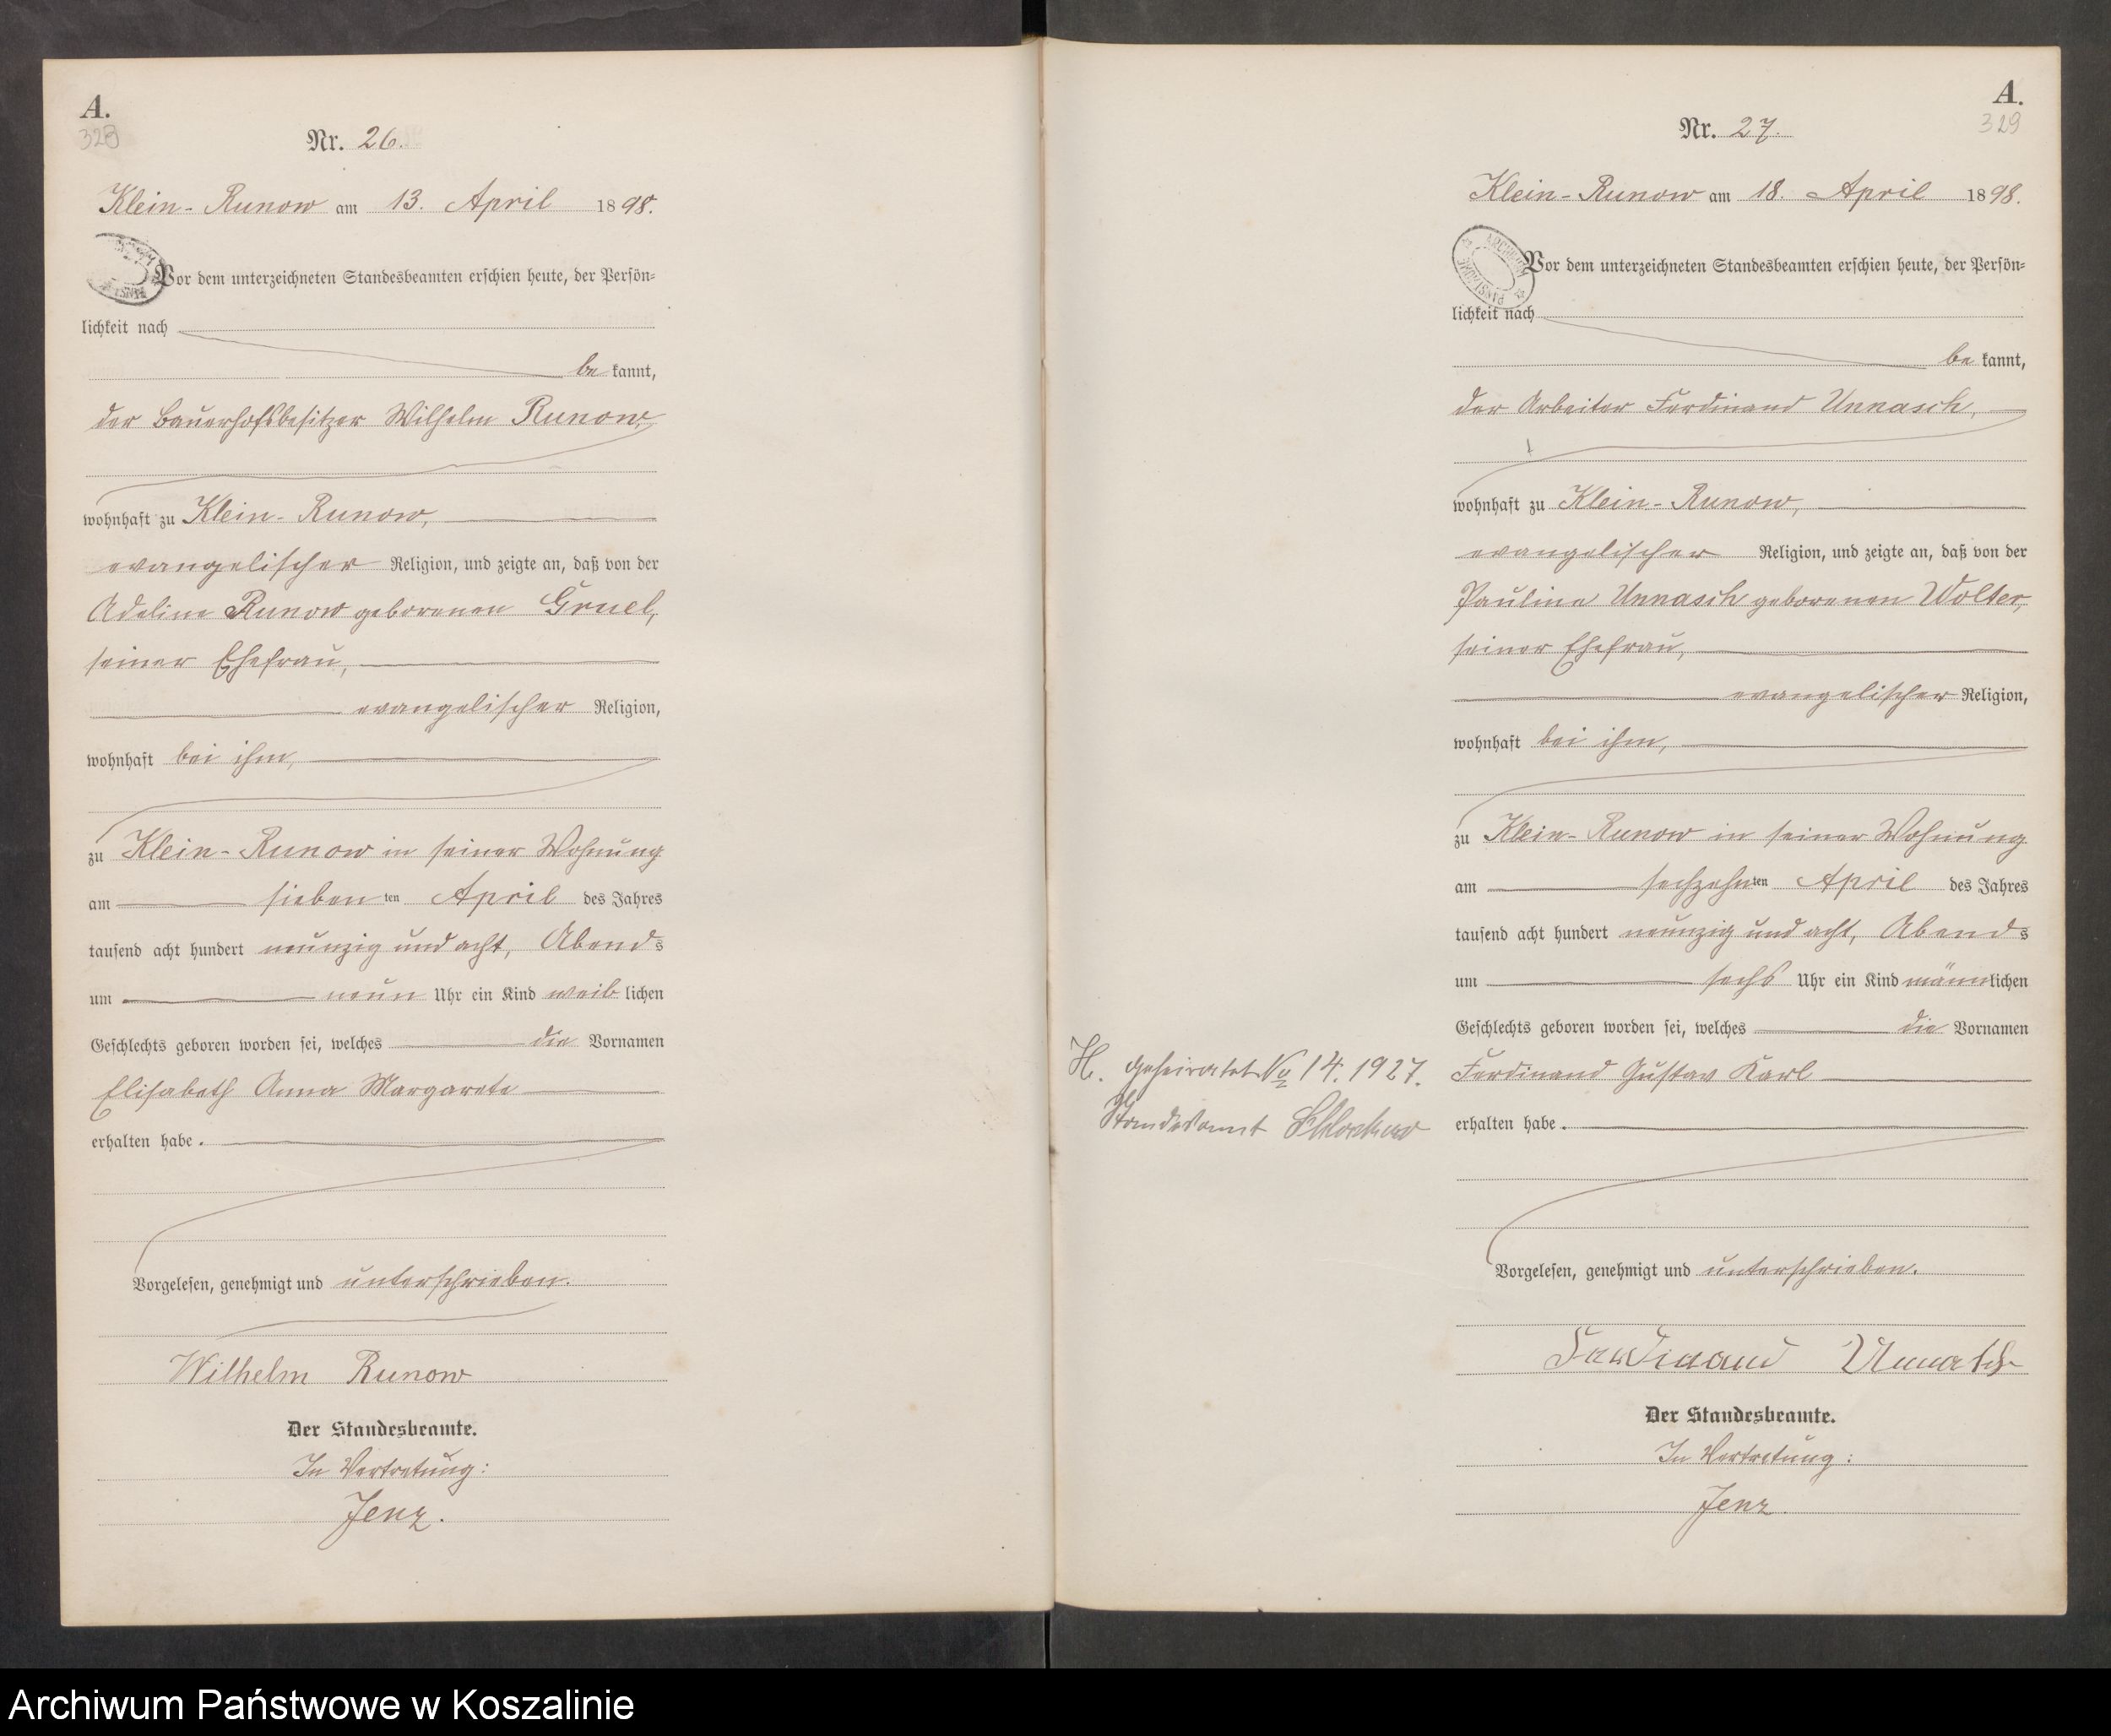 A.
328
Nr. 26.
Klein-Runow am 13. April 1898.
Vor dem unterzeichneten Standesbeamten erschien heute, der Persön=
lichkeit nach
be kannt,
der Bauerhofsbesitzer Wilhelm Runow,
wohnhaft zu Klein-Runow,
evangelischer Religion, und zeigte an, daß von der
Adeline Runow geborenen Gruel,
seiner Ehefrau,
evangelischer Religion,
wohnhaft bei ihm,
zu Klein-Runow in seiner Wohnung
am sieben ten April des Jahres
tausend acht hundert neunzig und acht, Abends
um neun Uhr ein Kind weib lichen
Geschlechts geboren worden sei, welches die Vornamen
Elisabeth Anna Margarete
erhalten habe.
Vorgelesen, genehmigt und unterschrieben.
Wilhelm Runow
Der Standesbeamte.
In Vertretung:
Jenz.
A.
329
Nr. 27.
Klein-Runow am 18. April 1898.
ARCHIWUM PAŃSTWOWE
Vor dem unterzeichneten Standesbeamten erschien heute, der Persön=
lichkeit nach
be kannt,
der Arbeiter Ferdinand Unnasch,
wohnhaft zu Klein-Runow,
evangelischer Religion, und zeigte an, daß von der
Pauline Unnasch geborenen Wolter,
seiner Ehefrau,
evangelischer Religion,
wohnhaft bei ihm,
zu Klein-Runow in seiner Wohnung
am sechzehnten April des Jahres
tausend acht hundert neunzig und acht, Abends
um sechs Uhr ein Kind männlichen
Geschlechts geboren worden sei, welches die Vornamen
Ferdinand Gustav Karl
erhalten habe.
H. geheiratet 14. 1927.
Standesamt
Vorgelesen, genehmigt und unterschrieben.
Ferdinand Unnasch
Der Standesbeamte.
In Vertretung:
Jenz.
Archiwum Państwowe w Koszalinie